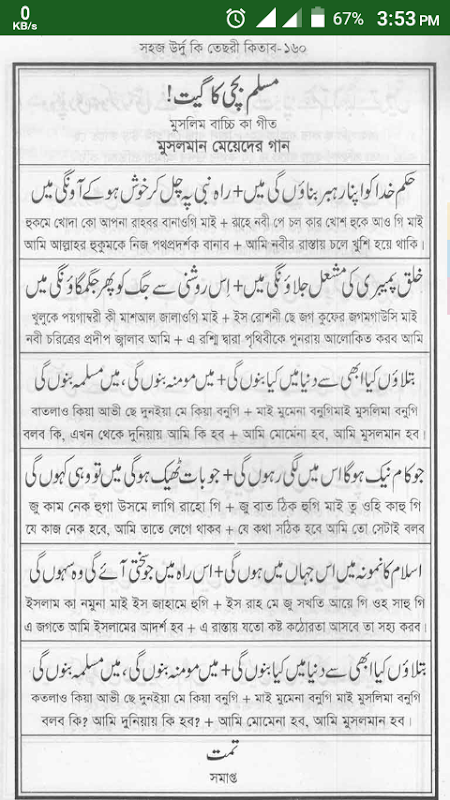 0
KB/s
67% 3:53 PM
সহজ উর্দু কি তেছরী কিতাব-১৬০
مسلم بچی کا گیت!
মুসলিম বাচ্চি কা গীত
মুসলমান মেয়েদের গান
حکم خدا کو اپنا رہبر بناؤں گی میں + راہ نبی پہ چل کر خوش ہو کے آونگی میں
হুকমে খোদা কো আপনা রাহবর বানাওগি মাই + রাহে নবী পে চল কার খোশ হুকে আও গি মাই
আমি আল্লাহর হুকুমকে নিজ পথপ্রদর্শক বানাব + আমি নবীর রাস্তায় চলে খুশি হয়ে থাকি।
خلق پیمبری کی مشعل جلاؤنگی میں + اس روشنی سے جگ کو پھر جگمگاؤنگی میں
খুলুকে পয়গাম্বরী কী মাশআল জালাওগি মাই + ইস রোশনী ছে জগ কুফের জগমগাউসি মাই
নবী চরিত্রের প্রদীপ জ্বালার আমি + এ রশ্মি দ্বারা পৃথিবীকে পুনরায় আলোকিত করব আমি
بتلاؤں کیا ابھی سے دنیا میں کیا بنوں گی + میں مومنہ بنوں گی، میں مسلمہ بنوں گی
বাতলাও কিয়া আভী ছে দুনইয়া মে কিয়া বনুগি + মাই মুমেনা বনুগিমাই মুসলিমা বনুগি
বলব কি, এখন থেকে দুনিয়ায় আমি কি হব + আমি মোমেনা হব, আমি মুসলমান হব।
جو کام نیک ہوگا اس میں لگی رہوں گی + جو بات ٹھیک ہوگی میں تو وہی کہوں گی
জু কাম নেক হুগা উসমে লাগি রাহো গি + জু বাত ঠিক হুগি মাই তু ওহি কাহু গি
যে কাজ নেক হবে, আমি তাতে লেগে থাকব + যে কথা সঠিক হবে আমি তো সেটাই বলব
اسلام کا نمونہ میں اس جہاں میں ہوں گی + اس راہ میں جو سختی آئے گی وہ سہوں گی
ইসলাম কা নমুনা মাই ইস জাহামে হুগি + ইস রাহ মে জু সখতি আয়ে গি ওহ সাহু গি
এ জগতে আমি ইসলামের আদর্শ হব + এ রাস্তায় যতো কষ্ট কঠোরতা আসবে তা সহ্য করব।
بتلاؤں کیا ابھی سے دنیا میں کیا بنوں گی + میں مومنہ بنوں گی، میں مسلمہ بنوں گی
কতলাও কিয়া আভী ছে দুনইয়া মে কিয়া বনুগি + মাই মুমেনা বনুগি মাই মুসলিমা বনুগি
বলব কি? আমি দুনিয়ায় কি হব? + আমি মোমেনা হব, আমি মুসলমান হব।
تمت
সমাপ্ত